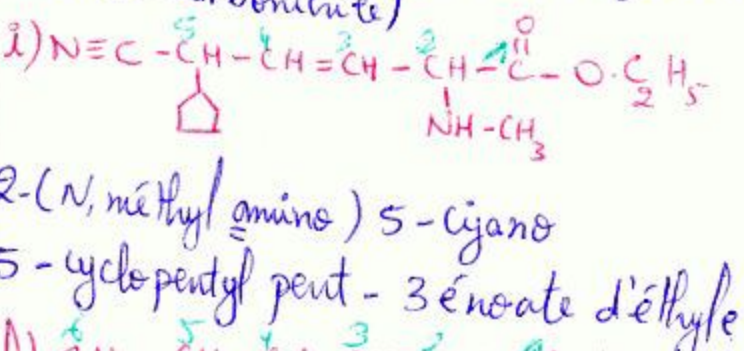 i) N≡C - CH - CH = CH - CH - C - O. C2 H5
5 4 3 2 1 O
NH - CH3
2-(N, méthyl amino) 5 - Cyano
5 - cyclopentyl pent - 3 énoate d'éthyle
6 5 4 3